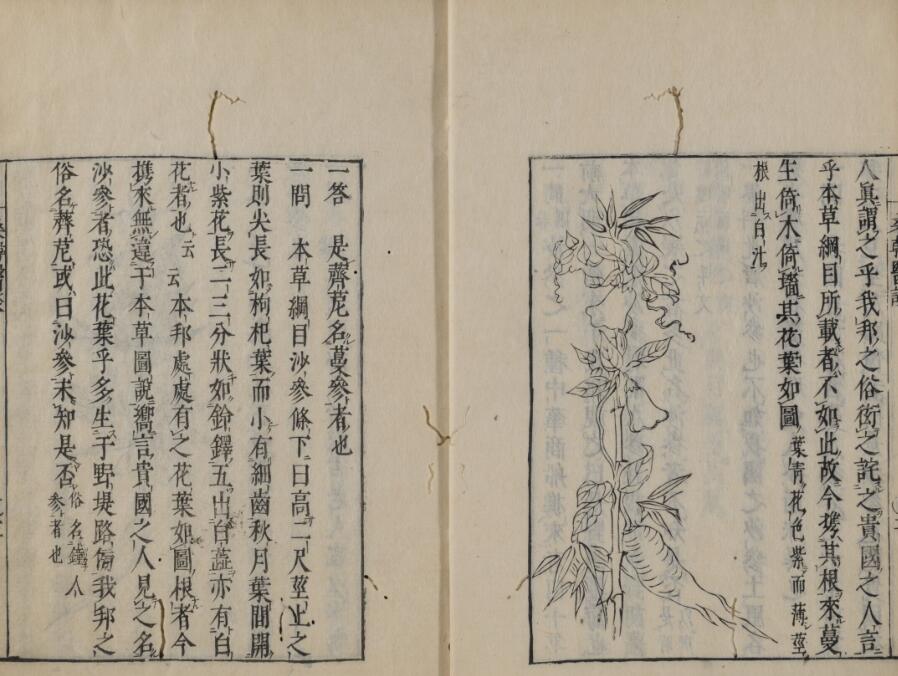 人眞謂之乎我邦之俗衒之詫之貴國之人言
乎本草綱目所載者不如此故今携其根來蔓
生倚木倚墻其花葉如圖葉青花色紫而薄莖
根出白汁
一答 是薺苨名蔓參者也
一問 本草綱目沙參條下曰高二尺莖上之
葉則尖長如枸杞葉而小有細齒秋月葉間開
小紫花長二三分狀如鈴鐸五出白蘂亦有白
花者也云云本邦處處有之花葉如圖根者今
携來無違于本草圖說嚮言貴國之人見之名
沙參者恐此花葉乎多生于野堤路傍我邦之
俗名薺苨或曰沙參未知是否俗名鐘人
參者也